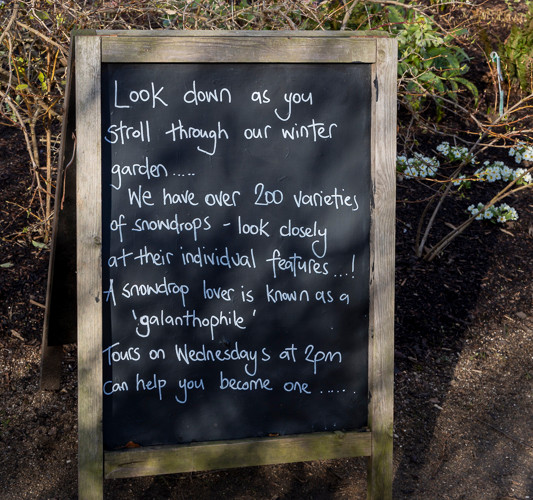 Look down as you
stroll through our winter
garden.....
We have over 200 varieties
of snowdrops - look closely
at their individual features...!
A snowdrop lover is known as a
'galanthophile'
Tours on Wednesdays at 2pm
can help you become one ......